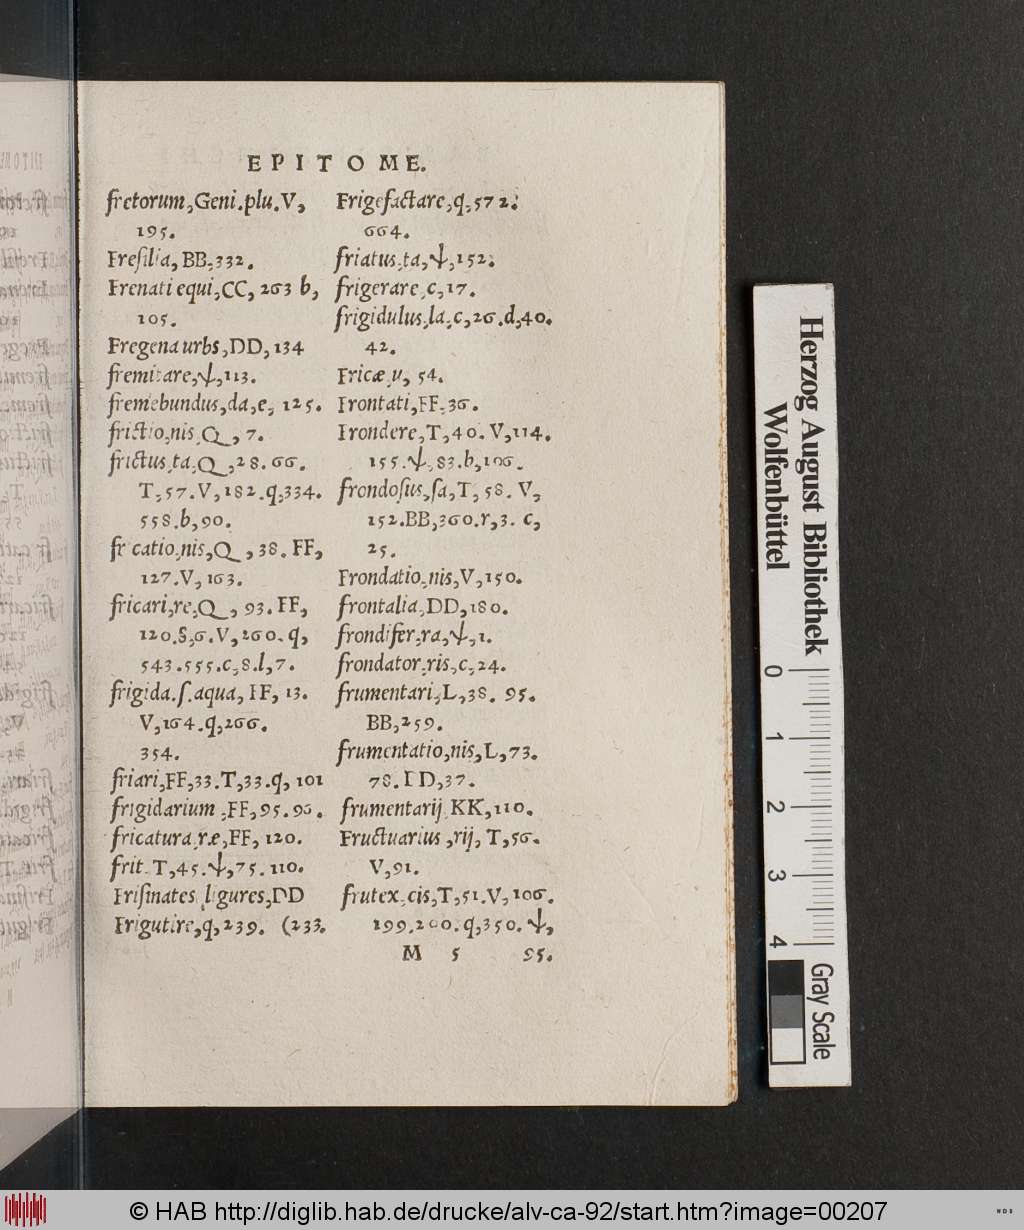 EPITOME.
fretorum, Geni. plu. V,
195.
Fresilia, BB, 332.
Frenati equi, CC, 263 b,
105.
Fregena urbs, DD, 134
fremitare, ѱ, 113.
fremebundus, da, e, 125.
frictio, nis, Q, 7.
frictus, ta, Q, 28. 66.
T, 57. V, 182. q, 334.
558. b, 90.
fricatio, nis, Q, 38. FF,
127. V, 163.
fricari, re, Q, 93. FF,
120. S, 6. V, 260. q,
543. 555. c, 8. l, 7.
frigida. ſ. aqua, FF, 13.
V, 164. q, 266.
354.
friari, FF, 33. T, 33. q, 101
frigidarium, FF, 95. 96.
fricatura, ræ, FF, 120.
frit. T, 45. ѱ, 75. 110.
Friſinates, ligures, DD
Frigutire, q, 239. (233.
Frigefactare, q, 572.
664.
friatus, ta, ѱ, 152.
frigerare, c, 17.
frigidulus, la, c, 26. d, 40.
42.
Fricæ, u, 54.
Frontati, FF, 36.
Frondere, T, 40. V, 114.
155. ѱ, 83. b, 106.
frondoſus, ſa, T, 58. V,
152. BB, 360. r, 3. c,
25.
Frondatio, nis, V, 150.
frontalia, DD, 180.
frondifer, ra, ѱ, 1.
frondator, ris, c, 24.
frumentari, L, 38. 95.
BB, 259.
frumentatio, nis, L, 73.
78. DD, 37.
frumentarij, KK, 110.
Fructuarius, rij, T, 56.
V, 91.
frutex, cis, T, 51. V, 106.
199. 200. q, 350. ѱ,
M 5 95.
Herzog August Bibliothek
Wolfenbüttel
0 1 2 3 4
Gray Scale
© HAB http://diglib.hab.de/drucke/alv-ca-92/start.htm?image=00207